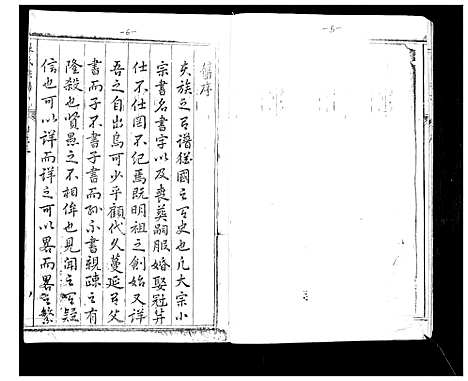 -5-
-6-
舊序
夫族之有譜猶國之有史也凡大宗小
宗書名書字以及喪葬嗣服婚娶冠笄
仕不仕罔不紀焉既明祖之創始又詳
吾之自出烏可少乎顧代久蔓延有父
書而子不書子書而孫不書親疎之有
隆殺也賢愚之不相侔也見聞之可疑
信也可以詳而詳之可以畧而畧之繁